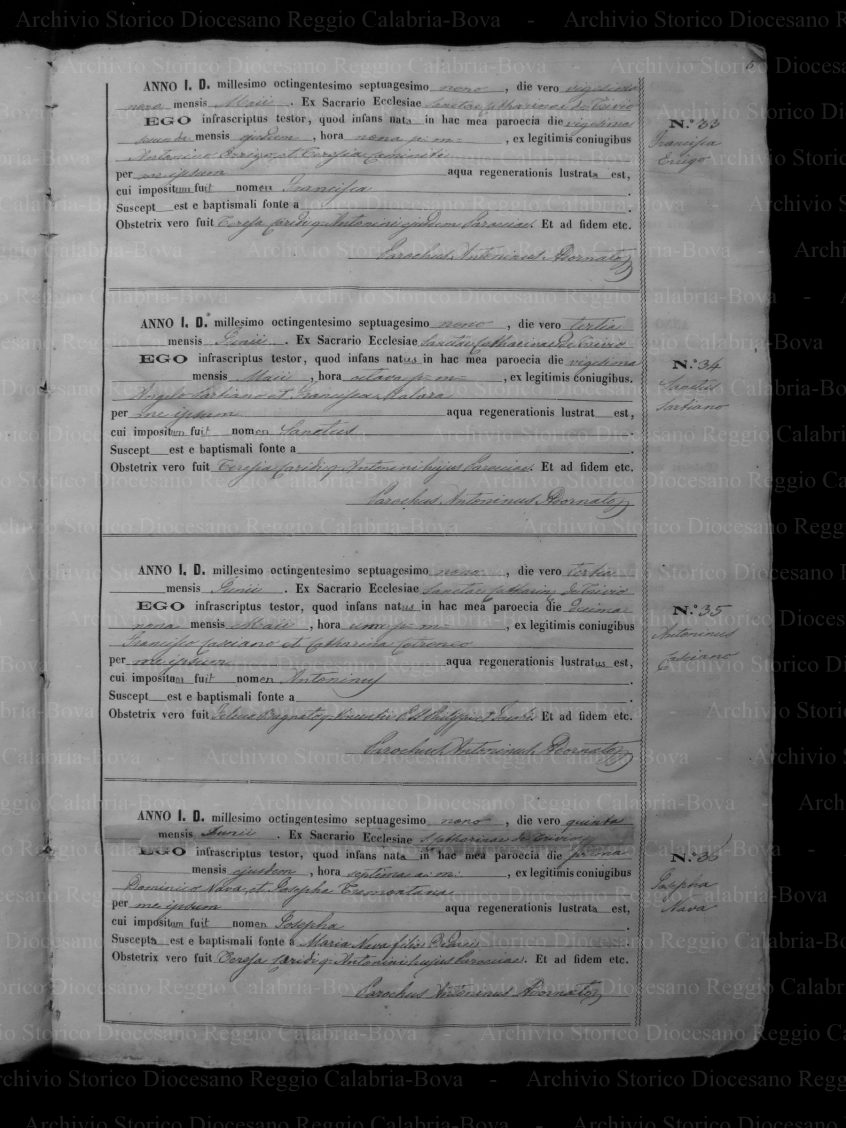 6
ANNO I. D. millesimo octingentesimo septuagesimo nono, die vero vigesima
nona mensis Maii. Ex Sacrario Ecclesiae Sanctae Catharinae De Trivio
EGO infrascriptus testor, quod infans nata in hac mea paroecia die vigesima
mensis ejusdem, hora nona p: m:, ex legitimis coniugibus
Antonino Errigo et Teresia Caminiti
per me ipsum aqua regenerationis lustrata est,
cui impositum fuit nomen Francisca
Suscept est e baptismali fonte a
Obstetrix vero fuit Teresa Antonini ejusdem Paroeciae. Et ad fidem etc.
Parochus Antoninus Adornato
N.º 33
Francisca
Errigo
ANNO I. D. millesimo octingentesimo septuagesimo nono, die vero tertia
mensis Junii. Ex Sacrario Ecclesiae Sanctae Catharinae De Trivio
EGO infrascriptus testor, quod infans natus in hac mea paroecia die vigesima
mensis Maii, hora octava p: m:, ex legitimis coniugibus.
Angelo Sartiano et Francisca Malara
per me ipsum aqua regenerationis lustrat est,
cui impositum fuit nomen Sanctus
Suscept est e baptismali fonte a
Obstetrix vero fuit Teresia Antonini hujus Paroeciae. Et ad fidem etc.
Parochus Antoninus Adornato
N.º 34
Sanctus
Sartiano
ANNO I. D. millesimo octingentesimo septuagesimo nono, die vero tertia
mensis Junii. Ex Sacrario Ecclesiae Sanctae Catharin. De Trivio
EGO infrascriptus testor, quod infans natus in hac mea paroecia die decima
nona mensis Maii, hora una p: m:, ex legitimis coniugibus
Francisco Casciano et Catharina
per me ipsum aqua regenerationis lustratus est,
cui impositum fuit nomen Antoninus
Suscept est e baptismali fonte a
Obstetrix vero fuit Et ad fidem etc.
Parochus Antoninus Adornato
N.º 35
Antoninus
Casciano
ANNO I. D. millesimo octingentesimo septuagesimo nono, die vero quinta
mensis Junii. Ex Sacrario Ecclesiae S. Catharinae de Trivio
EGO infrascriptus testor, quod infans nata in hac mea paroecia die prima
mensis ejusdem, hora septima a: m:, ex legitimis coniugibus
Dominico Nava et Josepha Tremontana
per me ipsum aqua regenerationis lustrata est,
cui impositum fuit nomen Josepha
Suscepta est e baptismali fonte a Maria Nava filia
Obstetrix vero fuit Teresa Antonini hujus Paroeciae. Et ad fidem etc.
Parochus Antoninus Adornato
N.º 36
Josepha
Nava